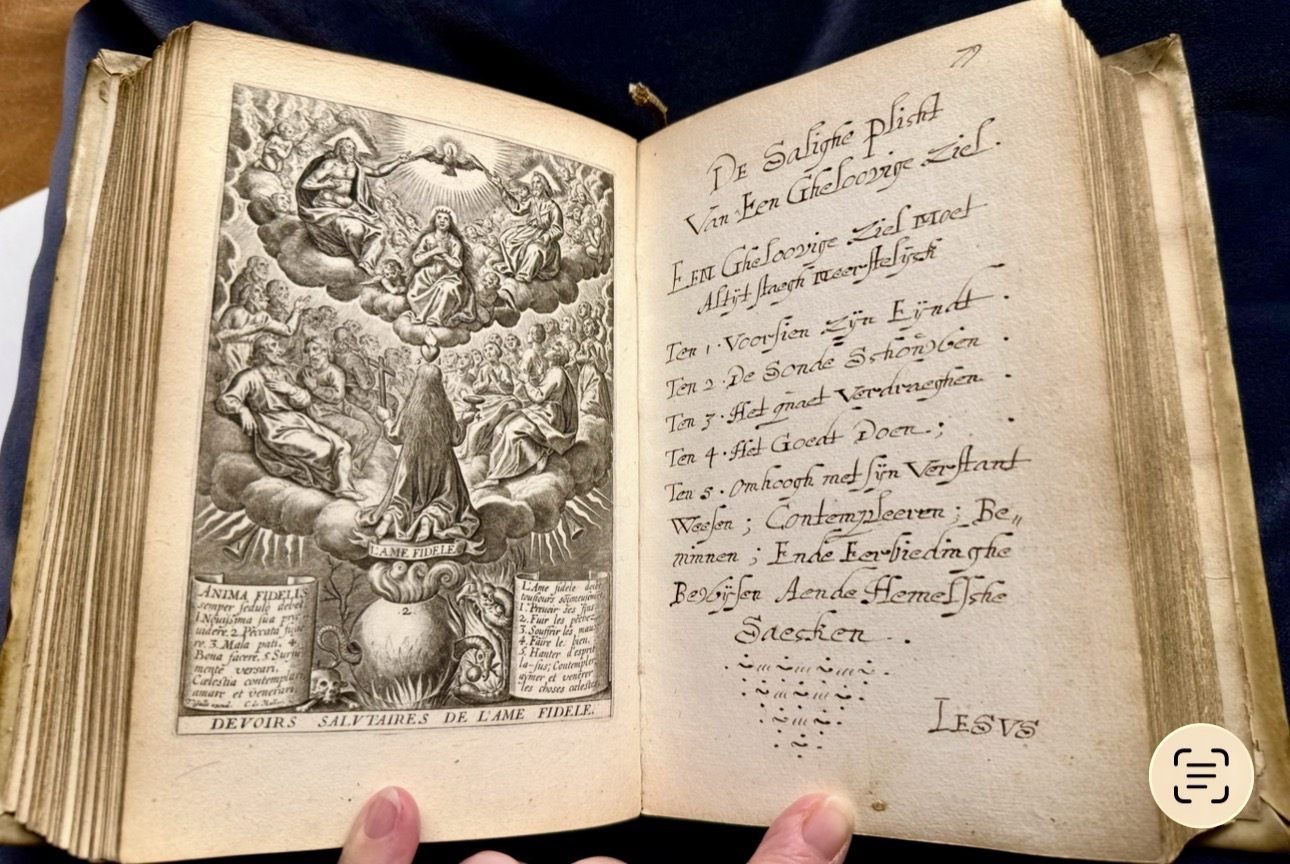 L'AME FIDELE
.2.
ANIMA FIDELIS
semper sedulò debet
1. Nouissima sua pro-
uidere. 2. Peccata fuge-
re. 3. Mala pati. 4.
Bona facere. 5. Sursum
mente versari.
Cælestia contemplari
amare et venerari.
C. de Mallery
L'Ame fidele doibt
tousiours soigneusement
1. Preuoir ses fins
2. Fuir les pechez
3. Souffrir les maux
4. Faire le bien.
5. Hanter d'esprit
la-sus; Contempler
aymer et venerer
les choses cælestes
DEVOIRS SALVTAIRES DE L'AME FIDELE.
79
DE Salighe plicht
Van Een Gheloovige Ziel.
EEN Gheloovige Ziel Moet
Altijt staegh Neerstelijck
Ten 1. Voorsien Zÿn Eÿndt.
Ten 2. De Sonde Schouwen.
Ten 3. Het quaet Verdraeghen.
Ten 4. Het Goedt Doen;
Ten 5. Omhoogh met sÿn Verstant
Weesen; Contempleeren; Be„
minnen; Ende Eerbiedinghe
Bewÿsen Aende Hemelsche
Saecken.
IESVS